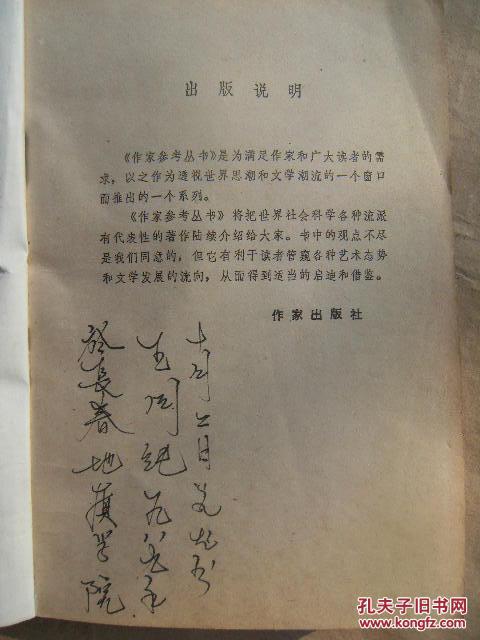 出版说明
《作家参考丛书》是为满足作家和广大读者的需
求，以之作为透视世界思潮和文学潮流的一个窗口
而推出的一个系列。
《作家参考丛书》将把世界社会科学各种流派
有代表性的著作陆续介绍给大家。书中的观点不尽
是我们同意的，但它有利于读者管窥各种艺术态势
和文学发展的流向，从而得到适当的启迪和借鉴。
作家出版社
於長春地质学院
九八九年
十月二日
孔夫子旧书网
www.kongfz.com